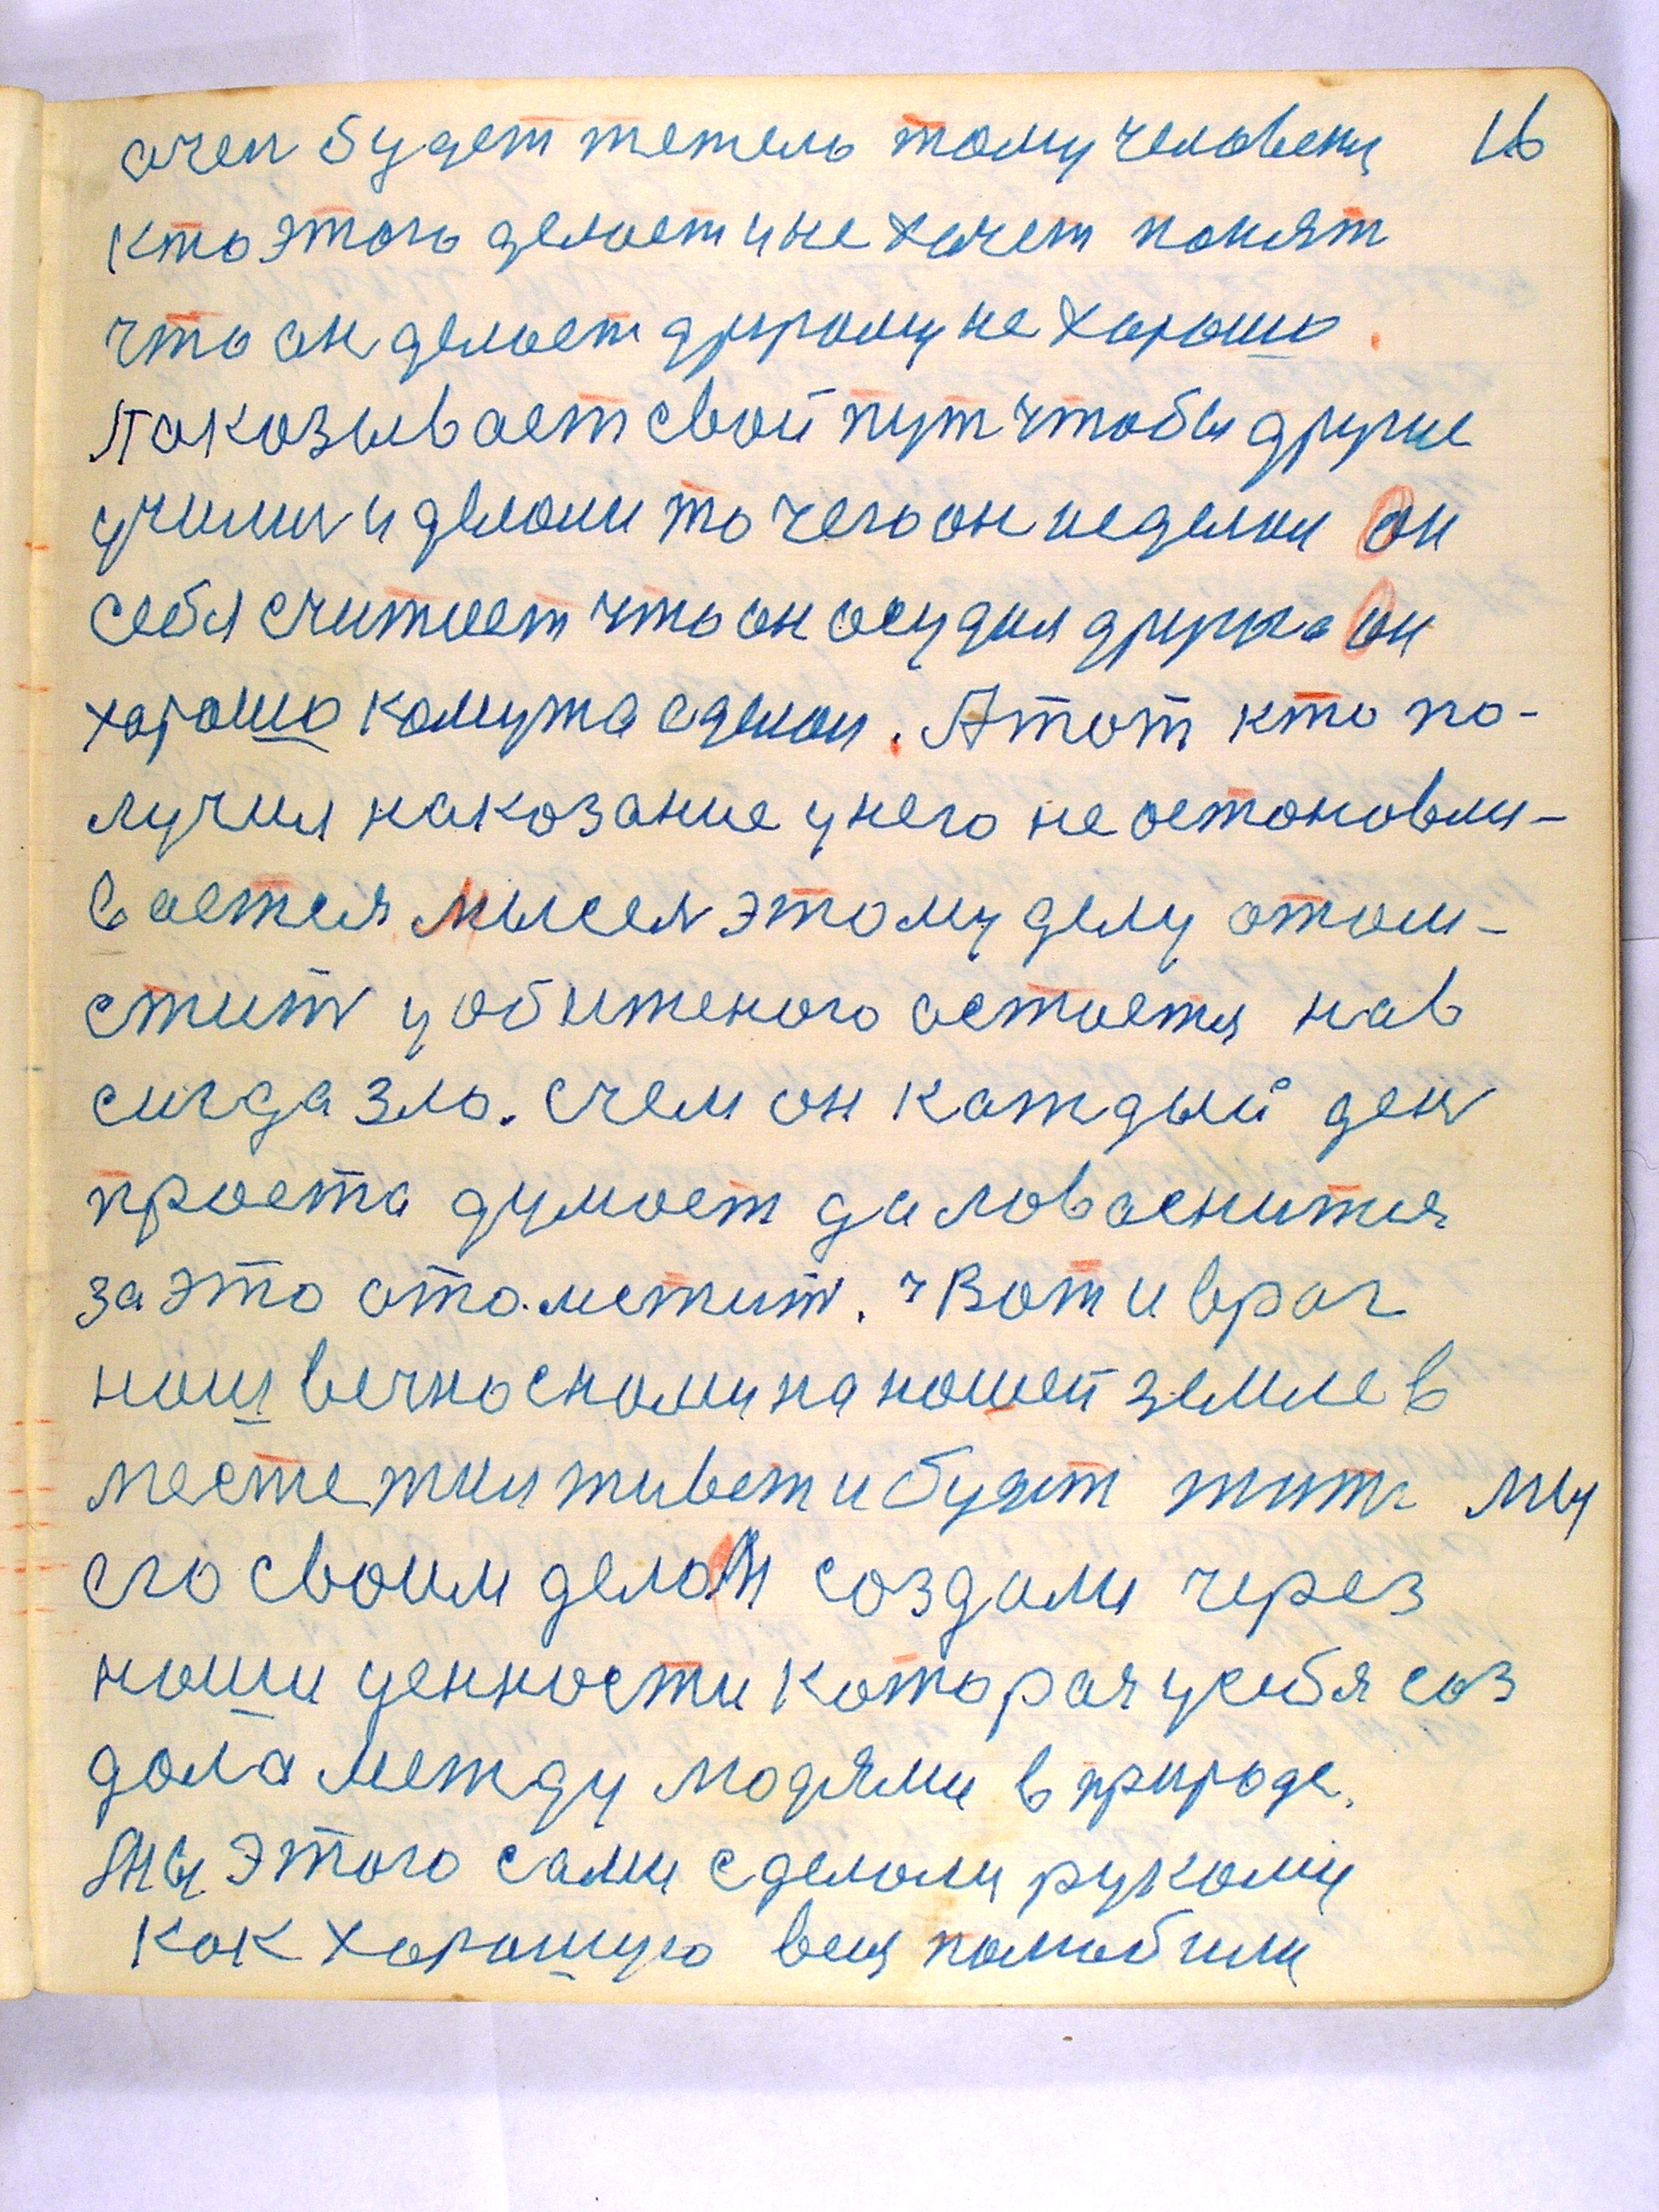 очен будет тежело тому человеку 16
кто этого делает и не хочет понят
что он делает другому не хорошо.
Показывает свой пут чтобы другие
учились и делали то чего он не делал он
себя считает что он осудил друга он
хорошо комута сделал. А тот кто по-
лучил наказание у него не остановли-
вается мысел этому делу отом-
стит у обиженого остается нав
сигда зло. С чем он каждый ден
проста думает
за это отомстит. Вот и враг
наш вечно снами на нашей земле в
месте жил живет и будет жить мы
его своим делом создали через
наши ценности которая у себя соз
дала между людями в природе.
Мы этого сами сделали руками
как хорошую вещ полюбили